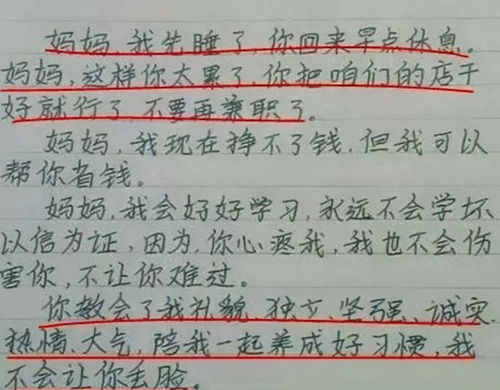 妈妈,我先睡了,你回来早点休息。
妈妈,这样你太累了,你把咱们的店干
好就行了,不要再兼职了。
妈妈,我现在挣不了钱,但我可以
帮你省钱。
妈妈,我会好好学习,永远不会学坏
以信为证,因为,你心疼我,我也不会伤
害你,不让你难过。
你教会了我礼貌、独立、坚强、诚实
热情、大气,陪我一起养成好习惯,我
不会让你丢脸。